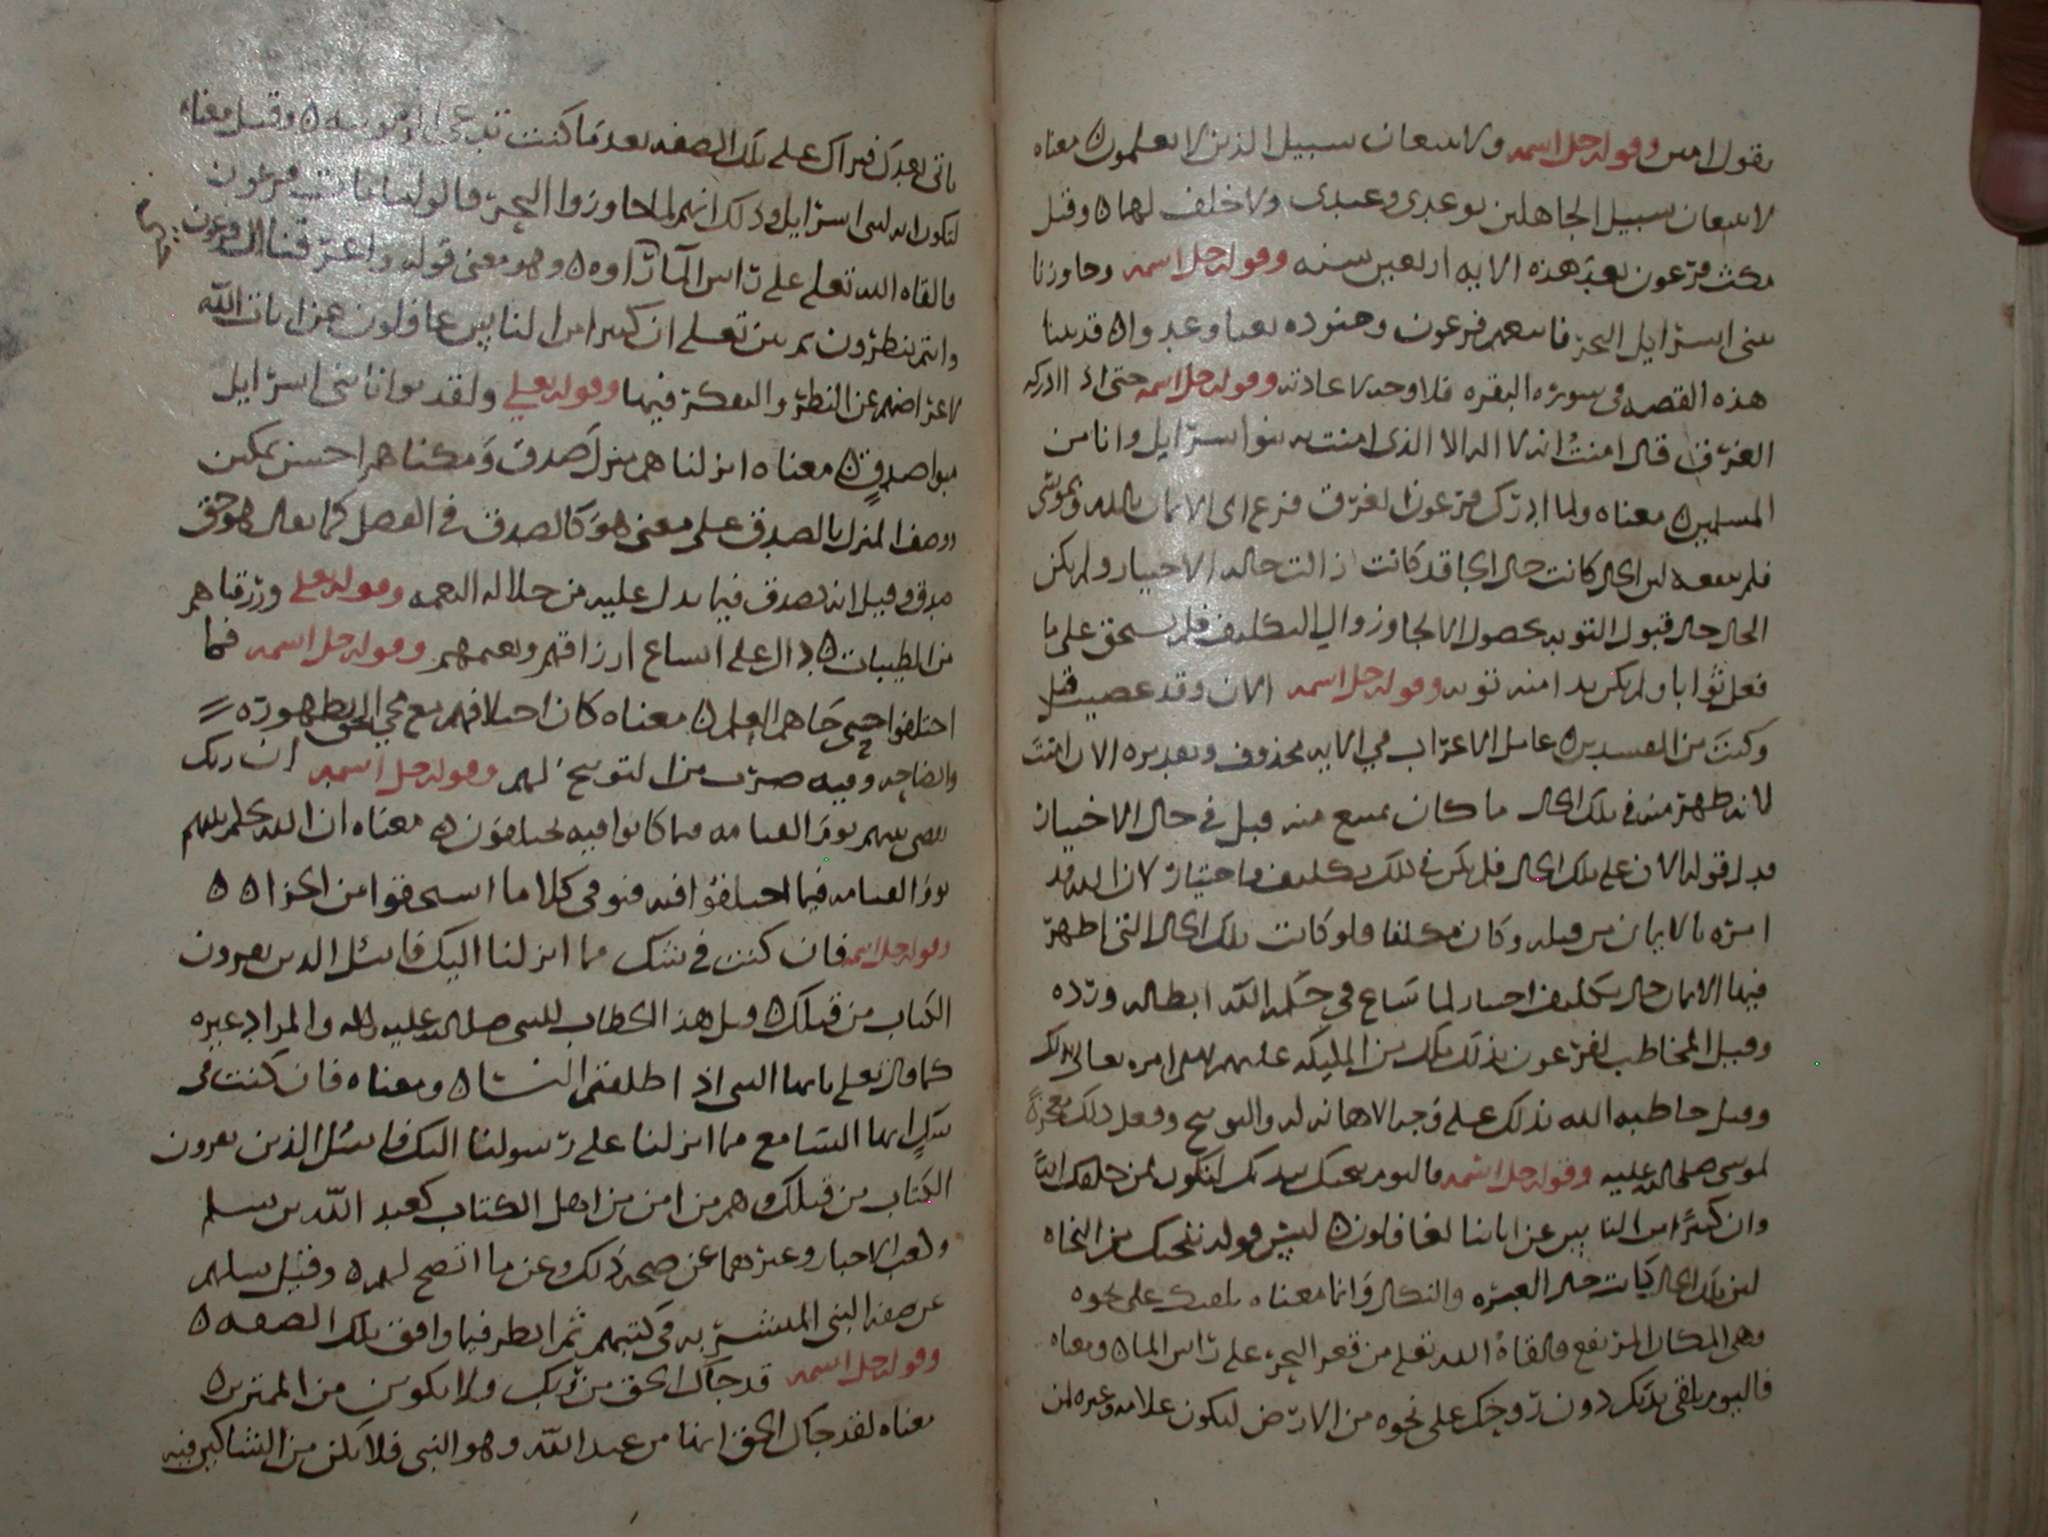 يقول امين وقوله جل اسمه ولا تتبعان سبيل الذين لا يعلمون ه معناه
لا تتبعان سبيل الجاهلين بوعدى وعيدى ولا خلف لهما ه وقيل
مكث فرعون بعد هذه الايه اربعين سنه وقوله جل اسمه وجاوزنا
ببنى اسرايل البحر فاتبعهم فرعون وجنوده بغيا وعدوا ه قد بينا
هذه القصه فى سوره البقره فلا وجه لاعادته وقوله جل اسمه حتى اذا ادركه
الغرق قال امنت انه لا اله الا الذى امنت به بنوا اسرايل وانا من
المسلمين ه معناه ولما ادرك فرعون الغرق فزع الى الايمان بالله وبموسى
فلم ينفعه لان الحال كانت حال الجا قد كانت زالت حاله الاختيار ولم يكن
الحال حال قبول التوبه بحصول الالجا وزوال التكليف فلم يستحق على ما
فعل ثوابا ولم يكن ندامته توبه وقوله جل اسمه الان وقد عصيت قبل
وكنت من المفسدين ه عامل الاعراب فى الايه محذوف وتقديره الان امنت
لانه ظهر منه فى تلك الحال ما كان يمتنع منه قبل فى حال الاختيار
فدل قوله الان على تلك الحال فلم يكن فى ذلك تكليف واختيار لان الله قد
امره بالايمان من قبله وكان مكلفا فلو كانت تلك الحال التى اظهر
فيها الايمان حال تكليف واختيار لما ساغ فى حكمه الله ابطاله ورده
وقيل المخاطب لفرعون بذلك ملك من المليكه عليهم السلم امره تعالى بذلك
وقيل خاطبه الله بذلك على وجه الاهانه له والتوبيخ وفعل ذلك معجزة
لموسى صلى الله عليه وقوله جل اسمه فاليوم ننجيك ببدنك لتكون لمن خلفك ايه
وان كثيرا من الناس عن اياتنا لغافلون ه ليس قوله ننجيك من النجاه
لان تلك الحال كانت حال العبره والنكال وانما معناه نلقيك على نجوه
وهى المكان المرتفع فالقاه الله تعلى من قعر البحر على راس الما ه ومعناه
فاليوم نلقى بدنك دون روحك على نجوه من الارض لتكون علامه وعبره لمن
ياتى بعدك فيراك على تلك الصفه بعد ما كنت تدعى الربوبيه ه وقيل معناه
لتكون ايه لبنى اسرايل وذلك انهم لما جاوزوا البحر قالوا لنا ما مات فرعون
فالقاه الله تعلى على راس الما فراوه ه وهو معنى قوله واغرقنا ال فرعون
وانتم تنظرون ثم بين تعلى ان كثيرا من الناس غافلون عن ايات الله
لاعراضهم عن النظر والتفكر فيها وقوله تعلى ولقد بوانا بنى اسرايل
مبوا صدق ه معناه انزلناهم منزل صدق ومكناهم احسن تمكين
ووصف المنزل بالصدق على معنى هو كالصدق فى الفضل كما يقال هو حق
صدق وقيل انه يصدق فيما يدل عليه من جلاله النعمه وقوله تعلى ورزقناهم
من الطيبات ه دال على اتساع ارزاقهم ونعمهم وقوله جل اسمه فما
اختلفوا حتى جاهم العلم ه معناه كان اختلافهم مع مجى الحق بظهوره
وايضاحه وفيه ضرب من التوبيخ لهم وقوله جل اسمه ان ربك
يقضى بينهم يوم القيامه فيما كانوا فيه يختلفون ه معناه ان الله يحكم بينهم
يوم القيامه فيما اختلفوا فيه فيوفى كلا ما استحقوا من الجزا ه ه
وقوله جل اسمه فان كنت فى شك مما انزلنا اليك فاسئل الذين يقرون
الكتاب من قبلك ه وقيل هذا الخطاب للنبى صلى الله عليه واله والمراد غيره
كما قال تعلى يا ايها النبى اذا طلقتم النسا ه ومعناه فان كنت فى
شك ايها السامع مما انزلنا على رسولنا اليك فاسئل الذين يقرون
الكتاب من قبلك وهم من امن من اهل الكتاب كعبد الله بن سلم
وكعب الاحبار وغيرهما عن صحه ذلك وعن ما اتضح لهم ه وقيل سلهم
عن صفه النبى المبشر به فى كتبهم ثم انظر فيما وافق تلك الصفه ه
وقوله جل اسمه قد جاك الحق من ربك ولا تكونن من الممترين ه
معناه لقد جاك الحق ايها من عبد الله وهو النبى فلا تكن من الشاكين فيه